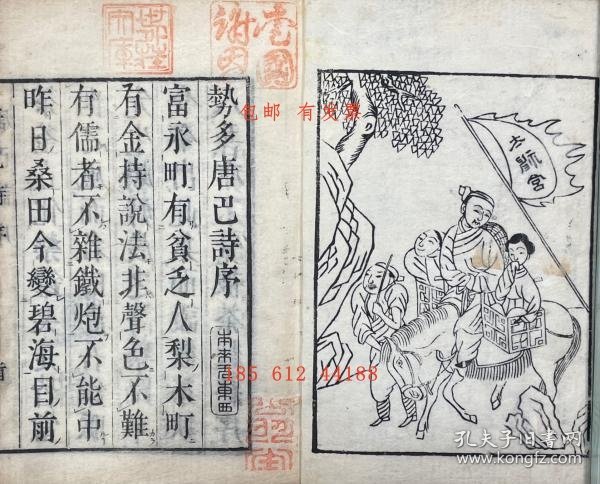 勢多唐巴詩序
富永町有貧乏人梨木町
有金持說法非聲色不難
有儒者不雜鐵炮不能中
昨日桑田今變碧海目前
包邮 有发票
185 612 44188
孔夫子旧书网
www.kongfz.com